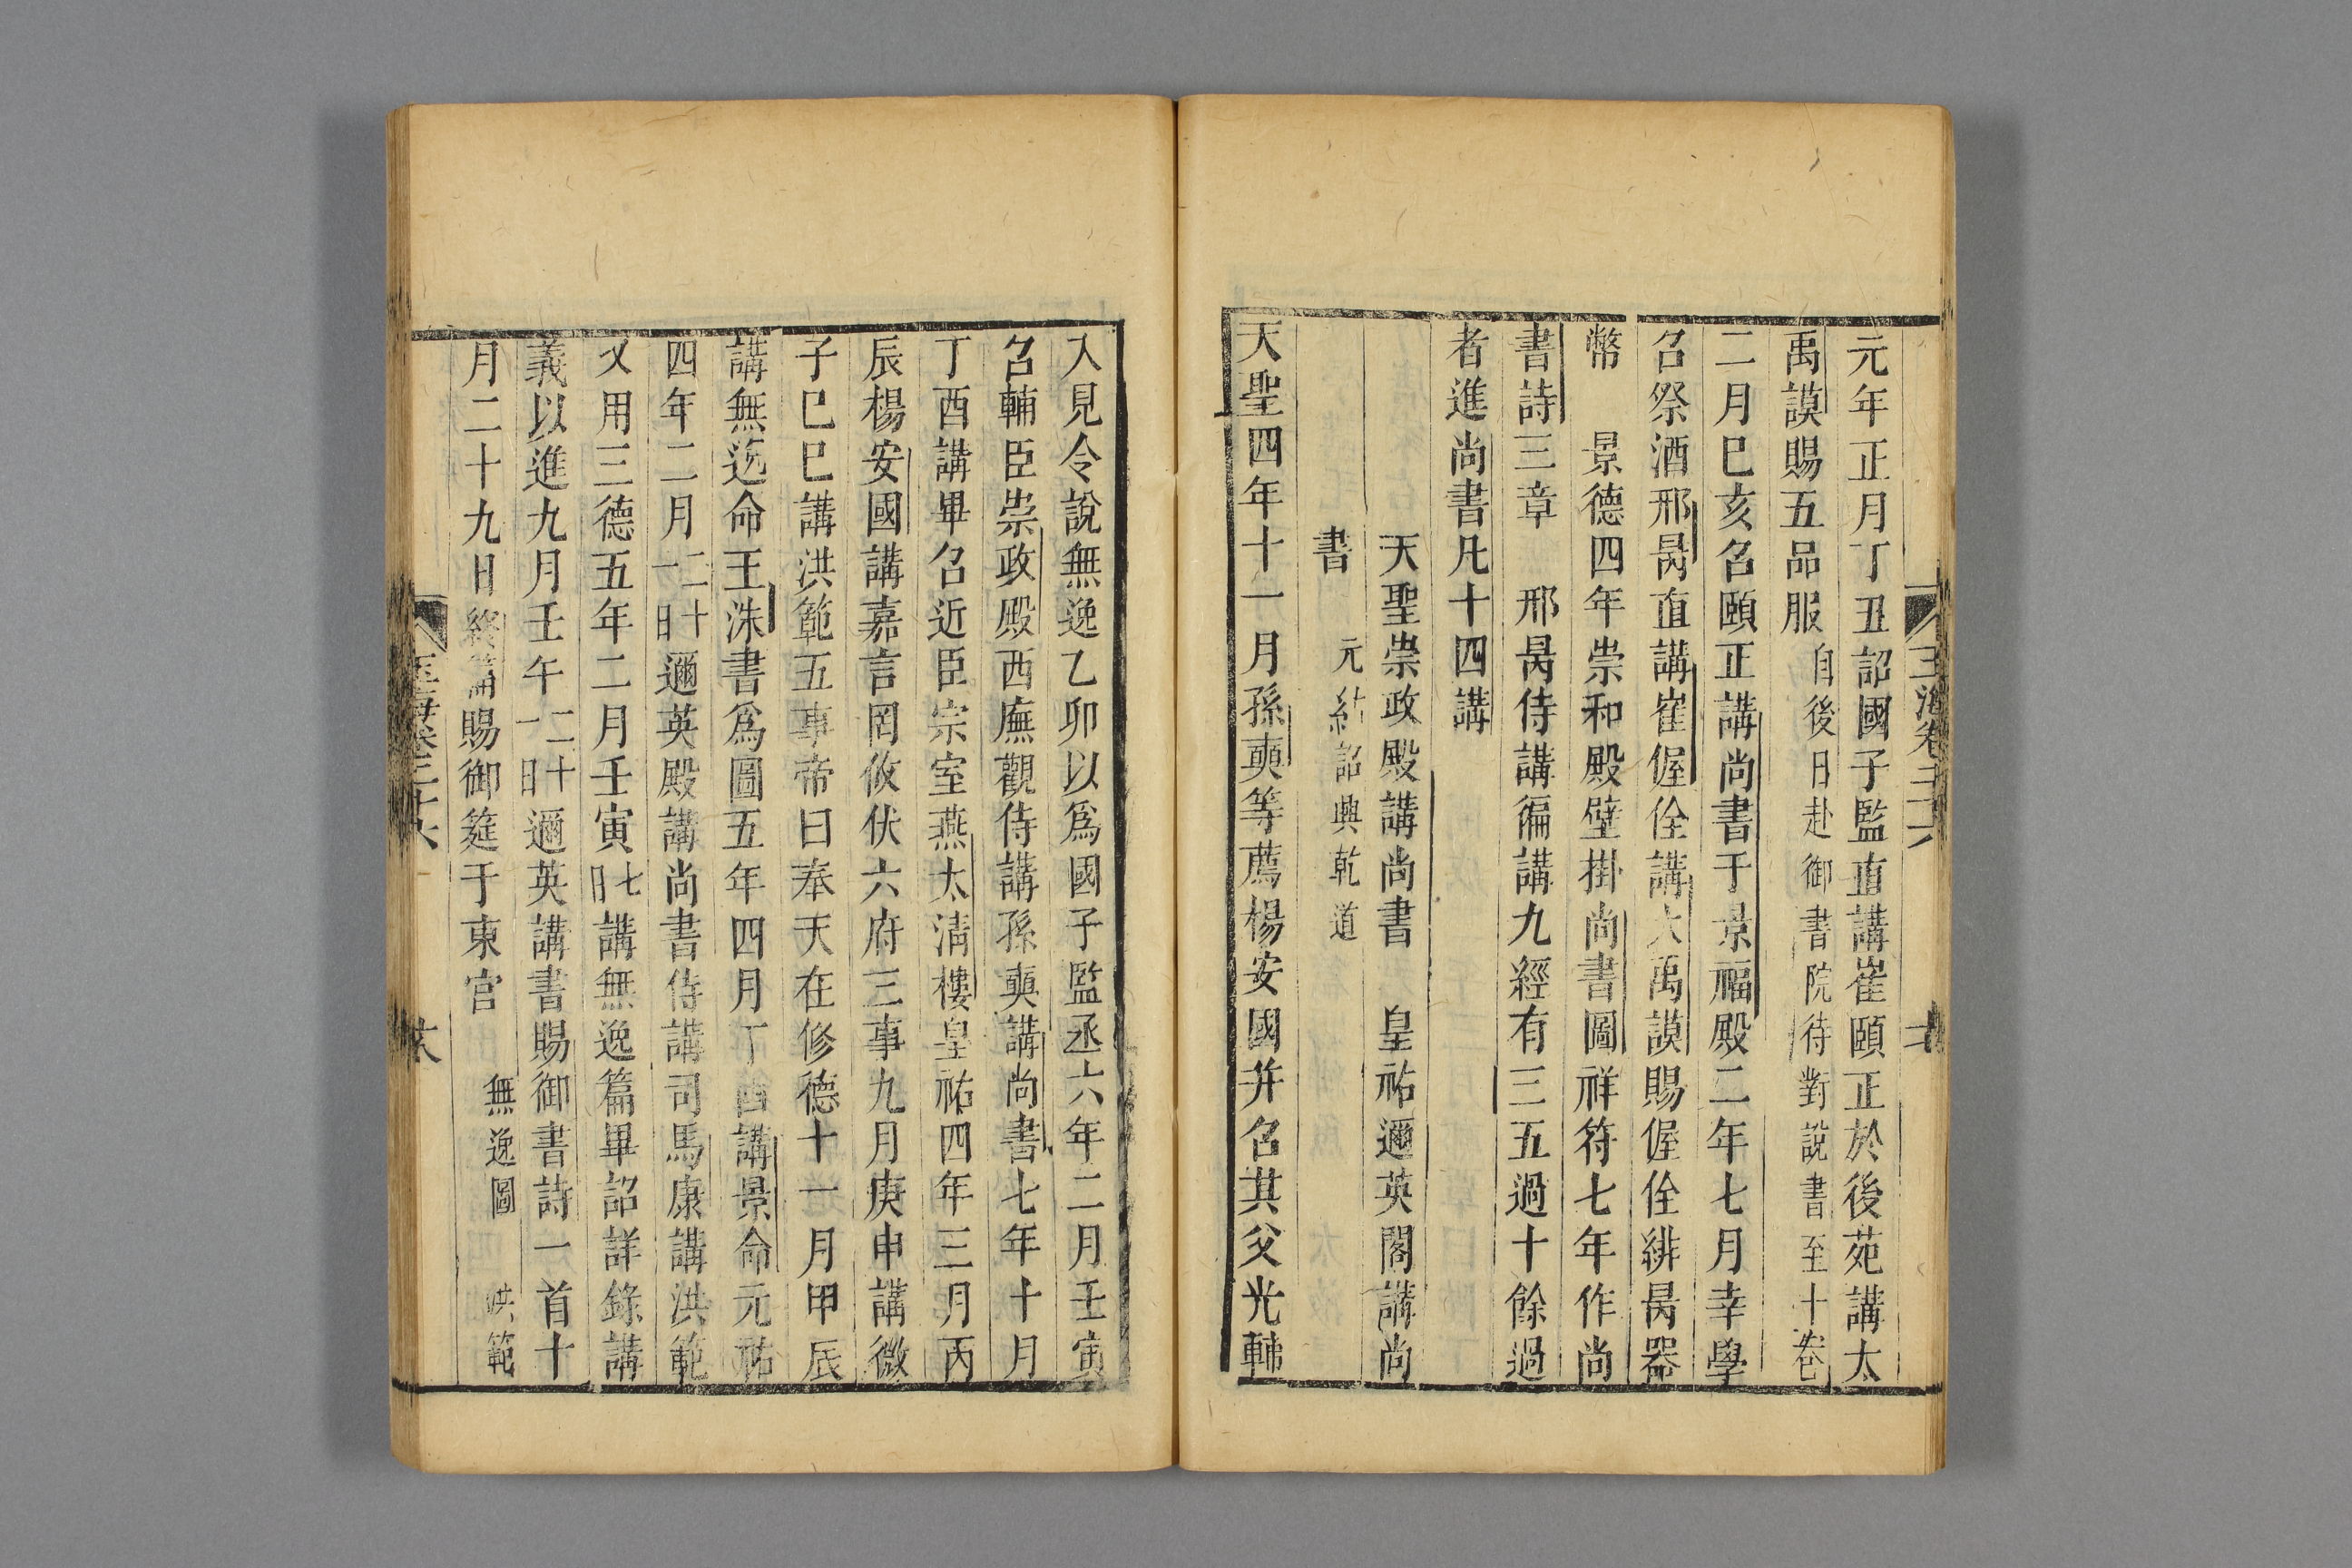 元年正月丁丑詔國子監直講崔頤正於後苑講大
禹謨賜五品服自後日赴御書院待對說書至十卷
二月巳亥召頤正講尚書于景福殿二年七月幸學
召祭酒邢昺直講崔偓佺講大禹謨賜偓佺緋昺器
幣　景德四年崇和殿壁掛尚書圖祥符七年作尚
書詩三章　邢昺侍講徧講九經有三五過十餘過
者進尚書凡十四講
天聖崇政殿講尚書　皇祐邇英閣講尚
書　元祐紹興乾道
天聖四年十一月孫奭等薦楊安國并召其父光輔
玉海卷三十六
入見令說無逸乙卯以爲國子監丞六年二月壬寅
召輔臣崇政殿西廡觀侍講孫奭講尚書七年十月
丁酉講畢召近臣宗室燕太淸樓皇祐四年三月丙
辰楊安國講嘉言罔攸伏六府三事九月庚申講微
子巳巳講洪範五事帝曰奉天在修德十一月甲辰
講無逸命王洙書爲圖五年四月丁酉講景命元祐
四年二月二十一日邇英殿講尚書侍講司馬康講洪範
乂用三德五年二月壬寅七日講無逸篇畢詔詳錄講
義以進九月壬午二十一日邇英講書賜御書詩一首十
月二十九日終篇賜御筵于東宮　無逸圖　洪範